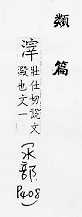 類篇
滓 壯仕切說文
澱也文一
（水部
P408）